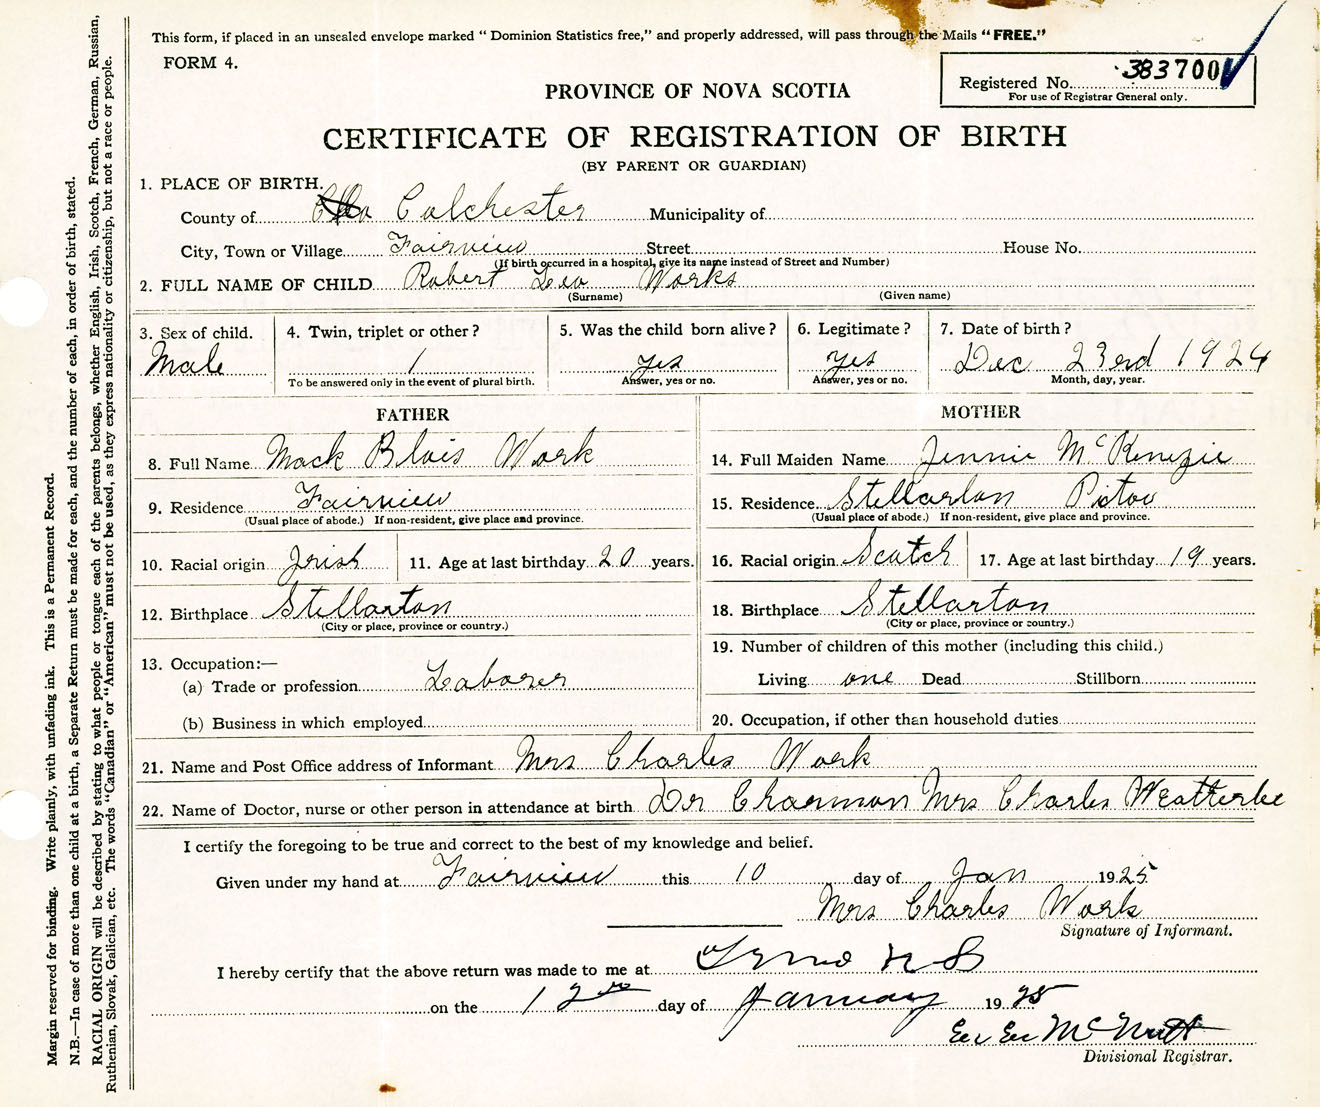 This form, if placed in an unsealed envelope marked "Dominion Statistics free," and properly addressed, will pass through the Mails "FREE."
FORM 4.
Registered No. 383700
For use of Registrar General only.
PROVINCE OF NOVA SCOTIA
CERTIFICATE OF REGISTRATION OF BIRTH
(BY PARENT OR GUARDIAN)
1. PLACE OF BIRTH.
County of Colchester Municipality of
City, Town or Village Fairview Street House No.
(If birth occurred in a hospital, give its name instead of Street and Number)
2. FULL NAME OF CHILD Robert Leo Works
(Surname) (Given name)
3. Sex of child. 4. Twin, triplet or other? 5. Was the child born alive? 6. Legitimate? 7. Date of birth?
Male 1 yes yes Dec 23rd 1924
To be answered only in the event of plural birth. Answer, yes or no. Answer, yes or no. Month, day, year.
FATHER MOTHER
8. Full Name Mack Blois Work 14. Full Maiden Name Jennie McKenzie
9. Residence Fairview 15. Residence Stellarton Pictou
(Usual place of abode.) If non-resident, give place and province. (Usual place of abode.) If non-resident, give place and province.
10. Racial origin Irish 11. Age at last birthday 20 years. 16. Racial origin Scotch 17. Age at last birthday 19 years.
12. Birthplace Stellarton 18. Birthplace Stellarton
(City or place, province or country.) (City or place, province or country.)
13. Occupation:— 19. Number of children of this mother (including this child.)
(a) Trade or profession Laborer Living one Dead Stillborn
(b) Business in which employed 20. Occupation, if other than household duties
21. Name and Post Office address of Informant Mrs Charles Work
22. Name of Doctor, nurse or other person in attendance at birth Dr Charman Mrs Charles Weatherbe
I certify the foregoing to be true and correct to the best of my knowledge and belief.
Given under my hand at Fairview this 10 day of Jan 1925
Mrs Charles Work
Signature of Informant.
I hereby certify that the above return was made to me at N S
on the 12th day of January 1925
McNutt
Divisional Registrar.
Margin reserved for binding. Write plainly, with unfading ink. This is a Permanent Record.
N.B.—In case of more than one child at a birth, a Separate Return must be made for each, and the number of each, in order of birth, stated.
RACIAL ORIGIN will be described by stating to what people or tongue each of the parents belongs, whether English, Irish, Scotch, French, German, Russian,
Ruthenian, Slovak, Galician, etc. The words "Canadian" or "American" must not be used, as they express nationality or citizenship, but not a race or people.